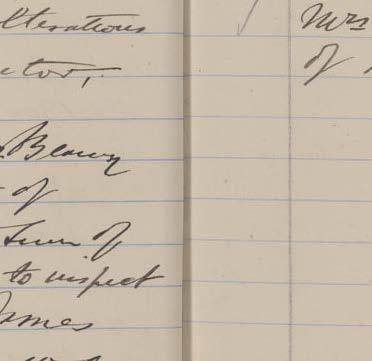 lterations
ctor,
of
Firm of
to inspect
James
Mrs
of